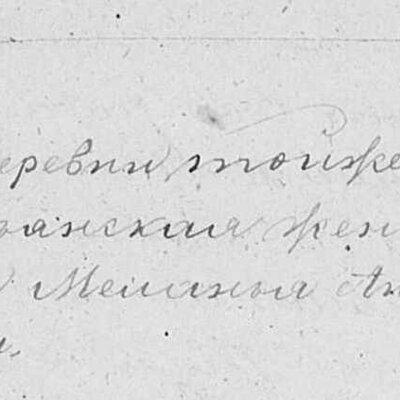 еревни тойже
янская жен
Меланья Ан